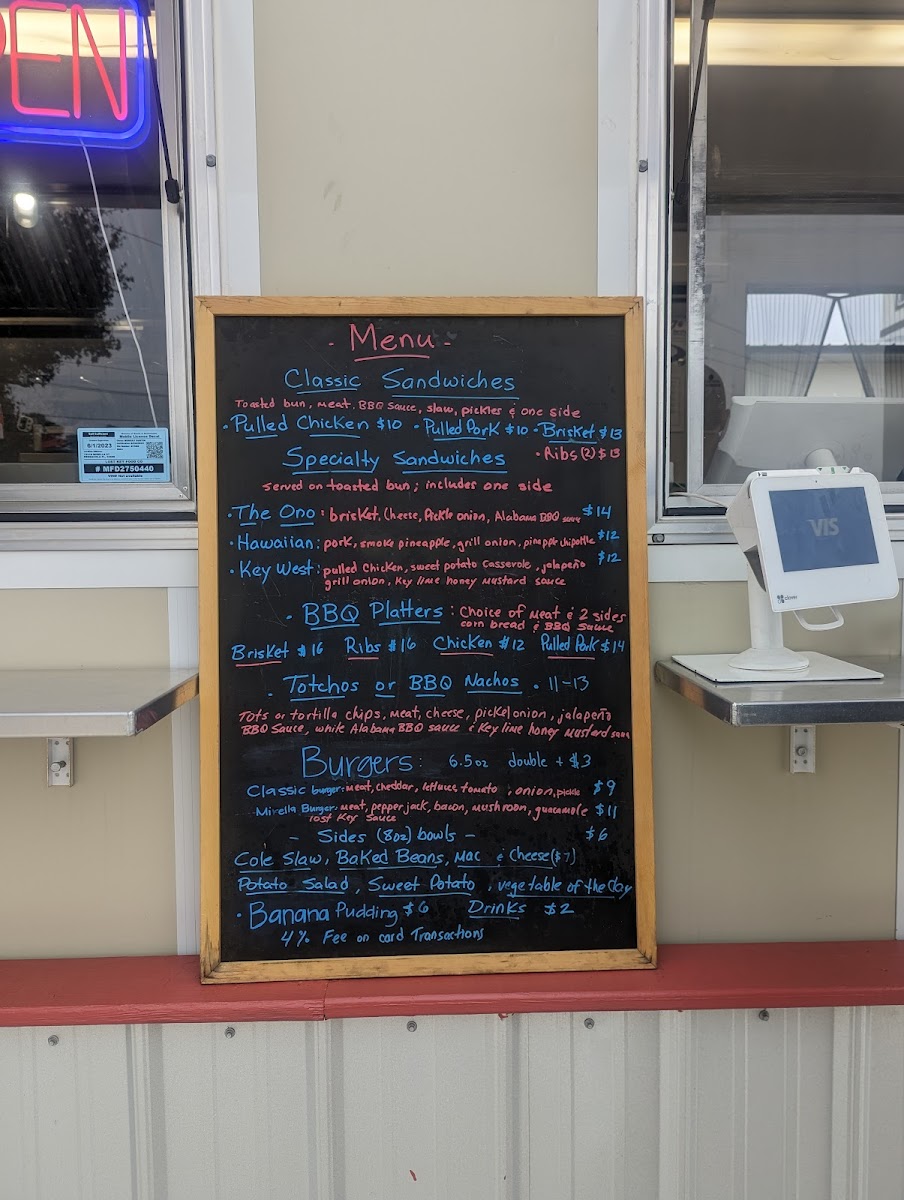 EN
- Menu -
Classic Sandwiches
Toasted bun, meat. BBQ Sauce, slaw, pickles & one side
· Pulled Chicken $10 · Pulled Pork $10 · Brisket $13
· Ribs (2) $13
Specialty Sandwiches
served on toasted bun; includes one side
· The Ono: brisket, Cheese, Pickle onion, Alabama BBQ sauce $14
· Hawaiian: pork, smoke pineapple, grill onion, pineapple chipotle $12
· Key West: pulled Chicken, sweet potato Casserole, jalapeño $12
grill onion, Key lime honey mustard sauce
· BBQ Platters: Choice of Meat & 2 sides
corn bread & BBQ Sauce
Brisket $16 Ribs $16 Chicken $12 Pulled Pork $14
· Totchos or BBQ Nachos · 11-13
Tots or tortilla chips, meat, cheese, pickel onion, jalapeño
BBQ Sauce, white Alabama BBQ sauce & Key lime honey Mustard sauce
Burgers: 6.5oz double + $3
Classic burger: meat, cheddar, lettuce, tomato, onion, pickle $9
Mirella Burger: meat, pepper jack, bacon, mushroom, guacamole $11
lost Key Sauce
- Sides (8oz) bowls - $6
Cole Slaw, Baked Beans, Mac & Cheese ($7)
Potato Salad, Sweet Potato, vegetable of the day
· Banana Pudding $6 Drinks $2
4% Fee on card Transactions
6/1/2023
# MFD2750440
VIS
clover